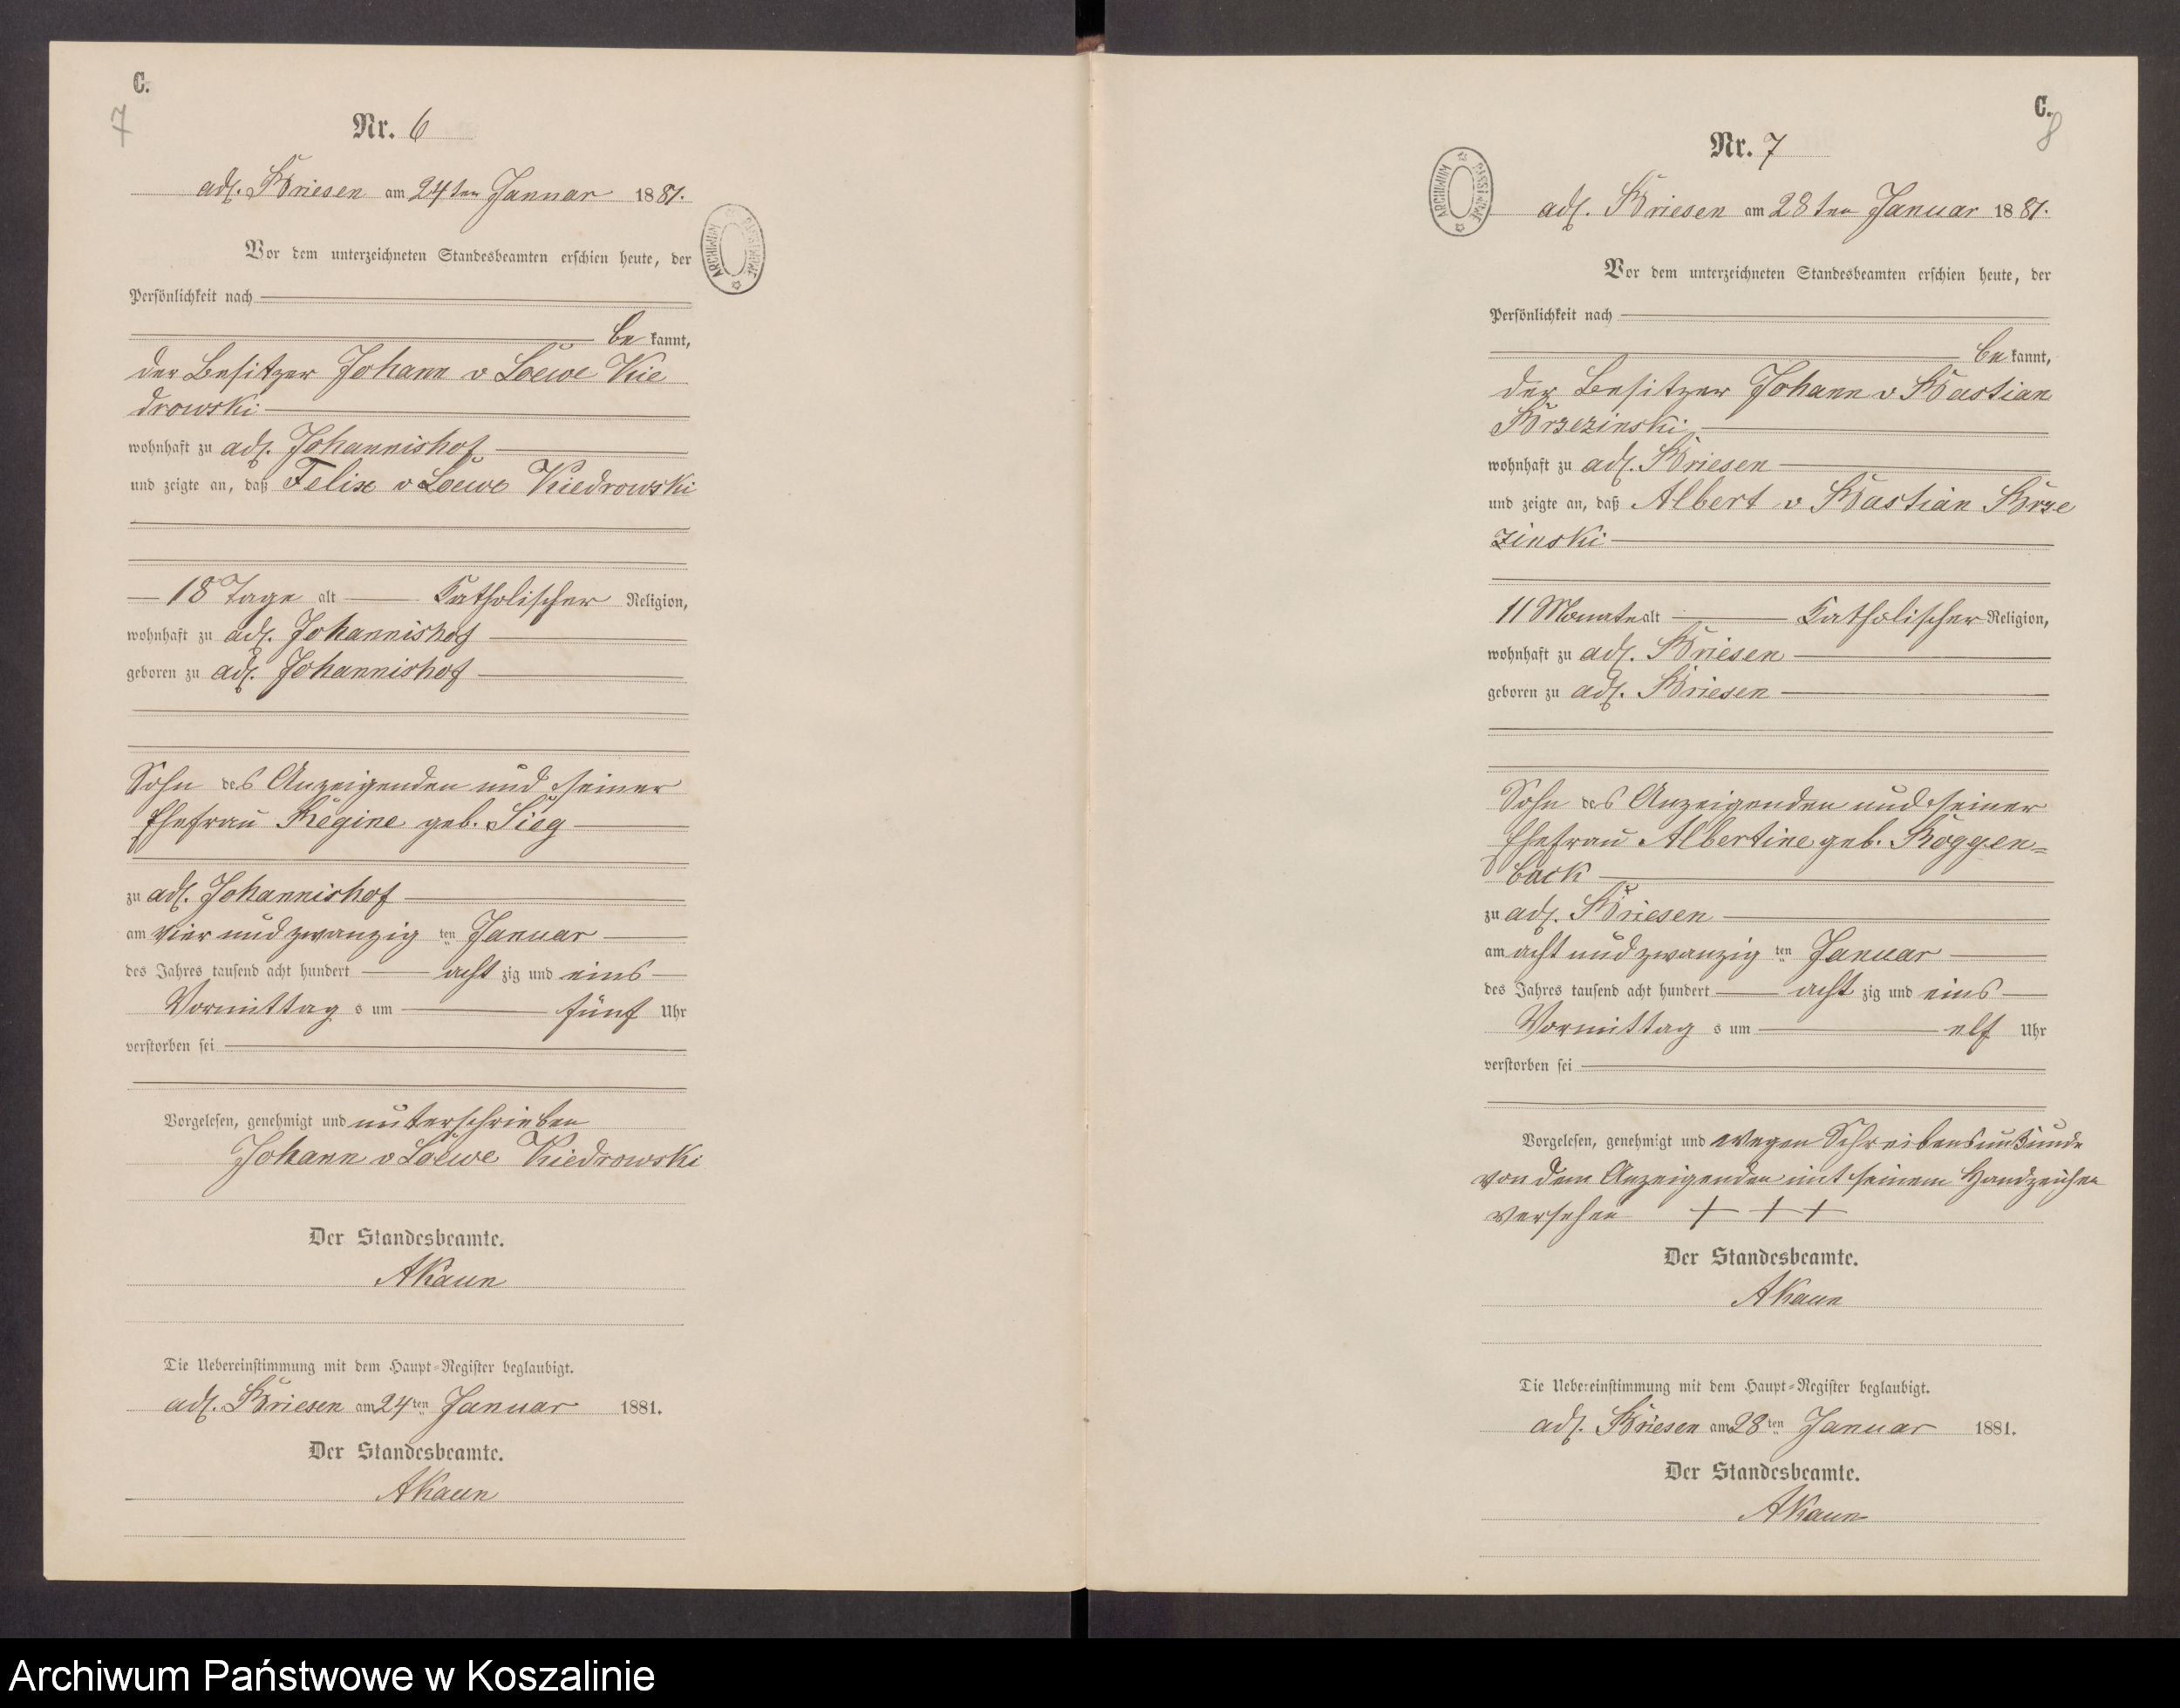 C.
7
Nr. 6
adl. Briesen am 24ten Januar 1881.
Vor dem unterzeichneten Standesbeamten erschien heute, der
Persönlichkeit nach
be kannt,
der Besitzer Johann v Loewe Kie
drowski
wohnhaft zu adl. Johannishof
und zeigte an, daß Felix v Loewe Kiedrowski
18 Tage alt katholischer Religion,
wohnhaft zu adl. Johannishof
geboren zu adl. Johannishof
Sohn des Anzeigenden und seiner
Ehefrau Regine geb. Sieg
zu adl. Johannishof
am vier und zwanzig ten Januar
des Jahres tausend acht hundert acht zig und eins
Vormittag s um fünf Uhr
verstorben sei
Vorgelesen, genehmigt und unterschrieben
Johann v Loewe Kiedrowski
Der Standesbeamte.
AKaun
Die Uebereinstimmung mit dem Haupt-Register beglaubigt.
adl. Briesen am 24ten Januar 1881.
Der Standesbeamte.
AKaun
ARCHIWUM PAŃSTWOWE
C.
8
Nr. 7
adl. Briesen am 28ten Januar 1881.
Vor dem unterzeichneten Standesbeamten erschien heute, der
Persönlichkeit nach
be kannt,
der Besitzer Johann v Bastian
Brzezinski
wohnhaft zu adl. Briesen
und zeigte an, daß Albert v Bastian Brze
zinski
11 Monate alt katholischer Religion,
wohnhaft zu adl. Briesen
geboren zu adl. Briesen
Sohn des Anzeigenden und seiner
Ehefrau Albertine geb. Roggen=
back
zu adl. Briesen
am acht und zwanzig ten Januar
des Jahres tausend acht hundert acht zig und eins
Vormittag s um elf Uhr
verstorben sei
Vorgelesen, genehmigt und wegen Schreibensunkunde
von dem Anzeigenden mit seinem Handzeichen
versehen + + +
Der Standesbeamte.
AKaun
Die Uebereinstimmung mit dem Haupt-Register beglaubigt.
adl. Briesen am 28ten Januar 1881.
Der Standesbeamte.
AKaun
ARCHIWUM PAŃSTWOWE
Archiwum Państwowe w Koszalinie